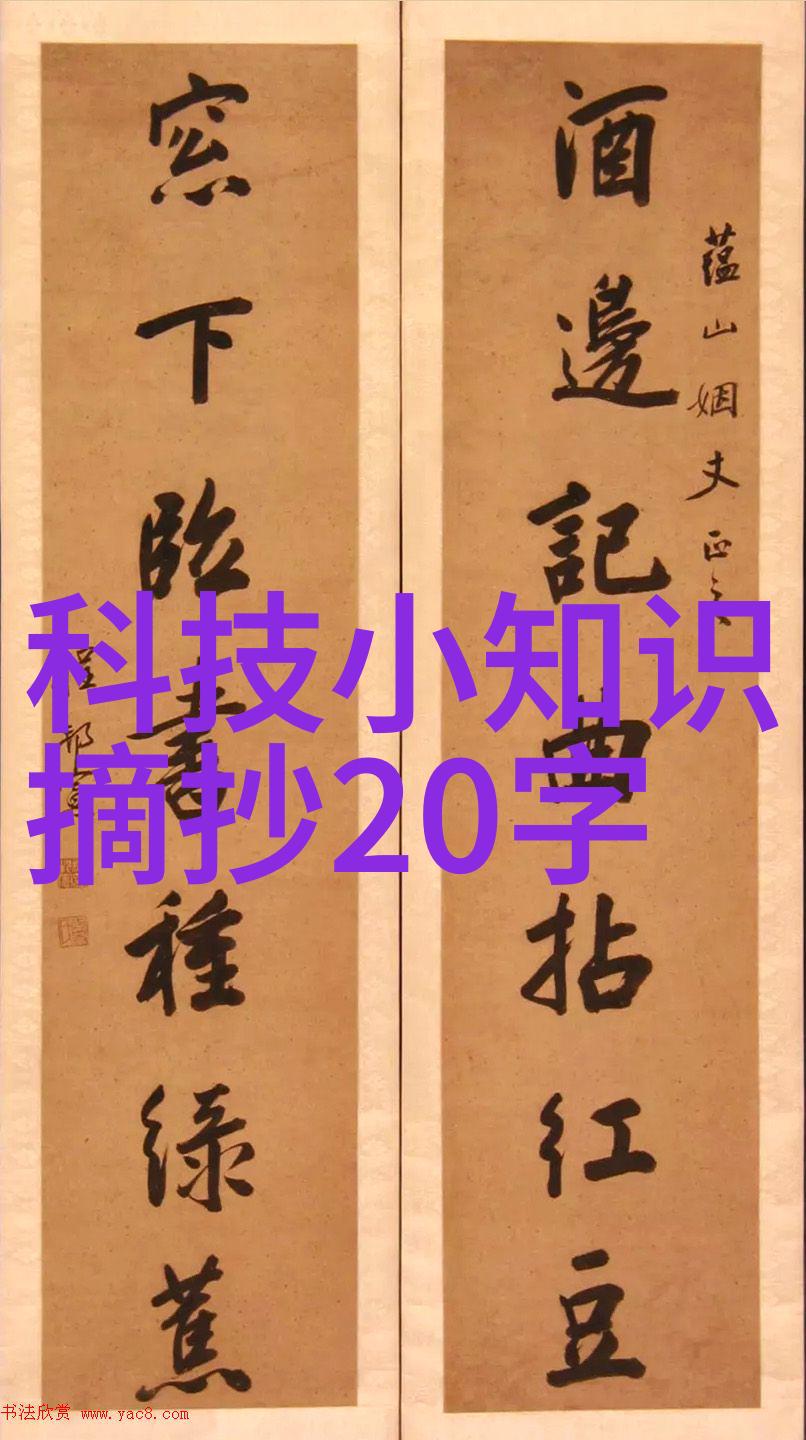 蘊山姻丈正之
酒邊記曲拈紅豆
窓下臨書種綠蕉
科技小知识
摘抄20字
书法欣赏 www.yac8.com